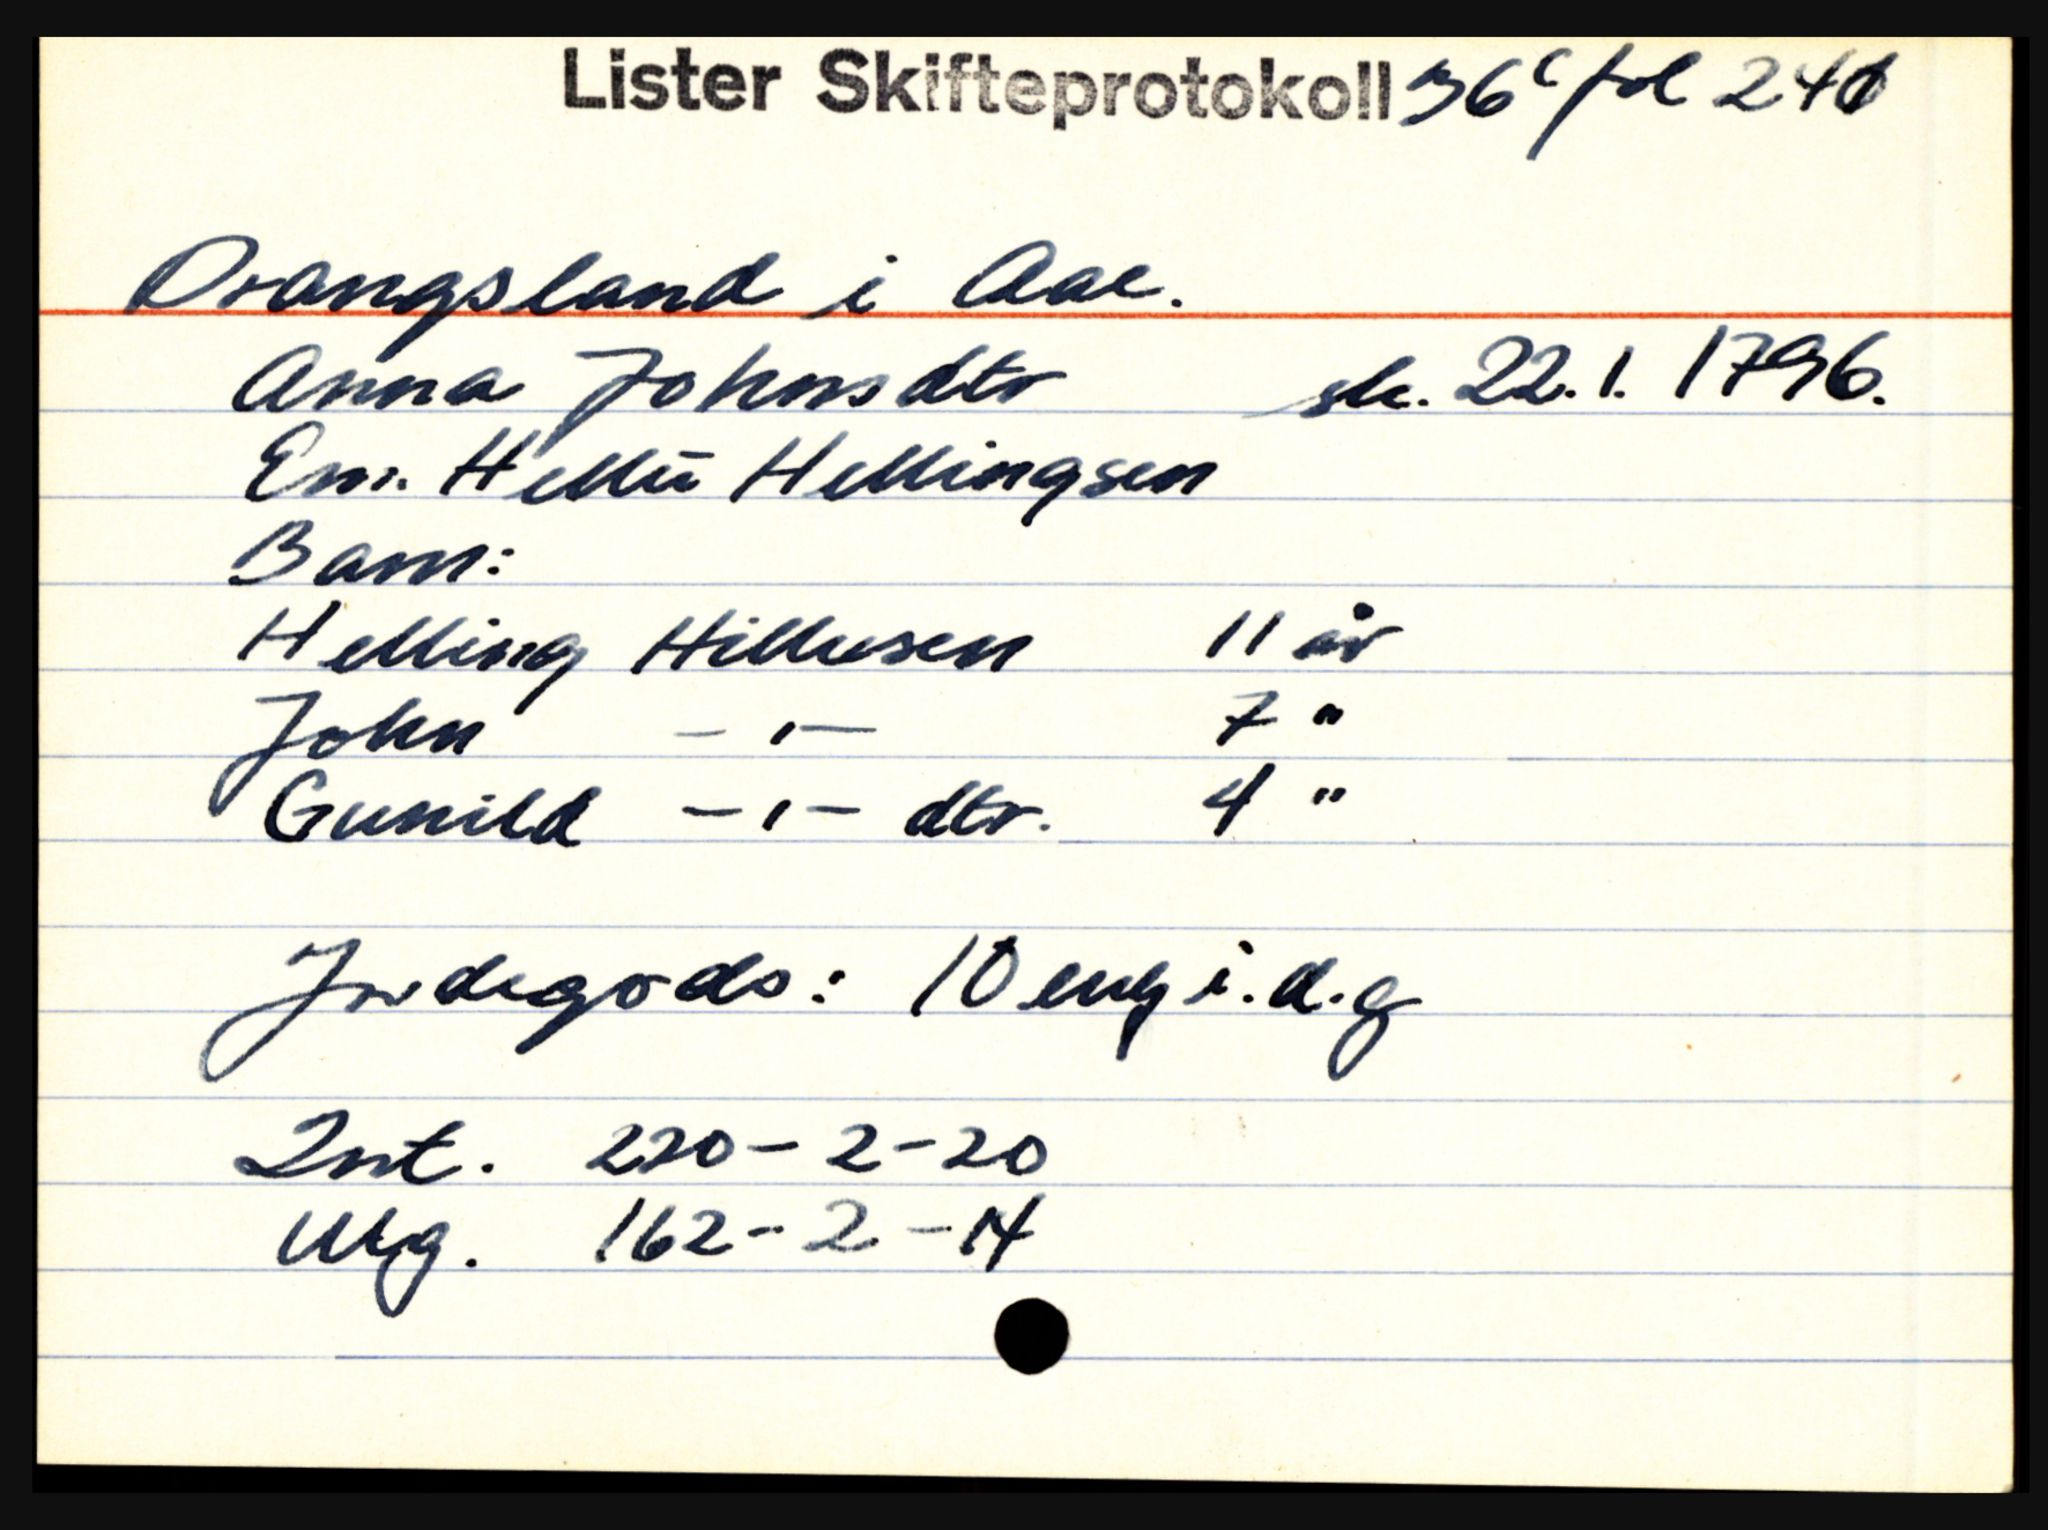 Lister Skifteprotokoll 36c fol 240
Drangsland i Aae.
Anna Johnsdtr sk. 22.1.1796.
Em. Hellu Hellingsen
Barn:
Helling Hellusen 11 år
John -"- 7 "
Gunild -"- dtr. 4 "
Jordegods: 10 eng i.d.g
Int. 220-2-20
Utg. 162-2-14